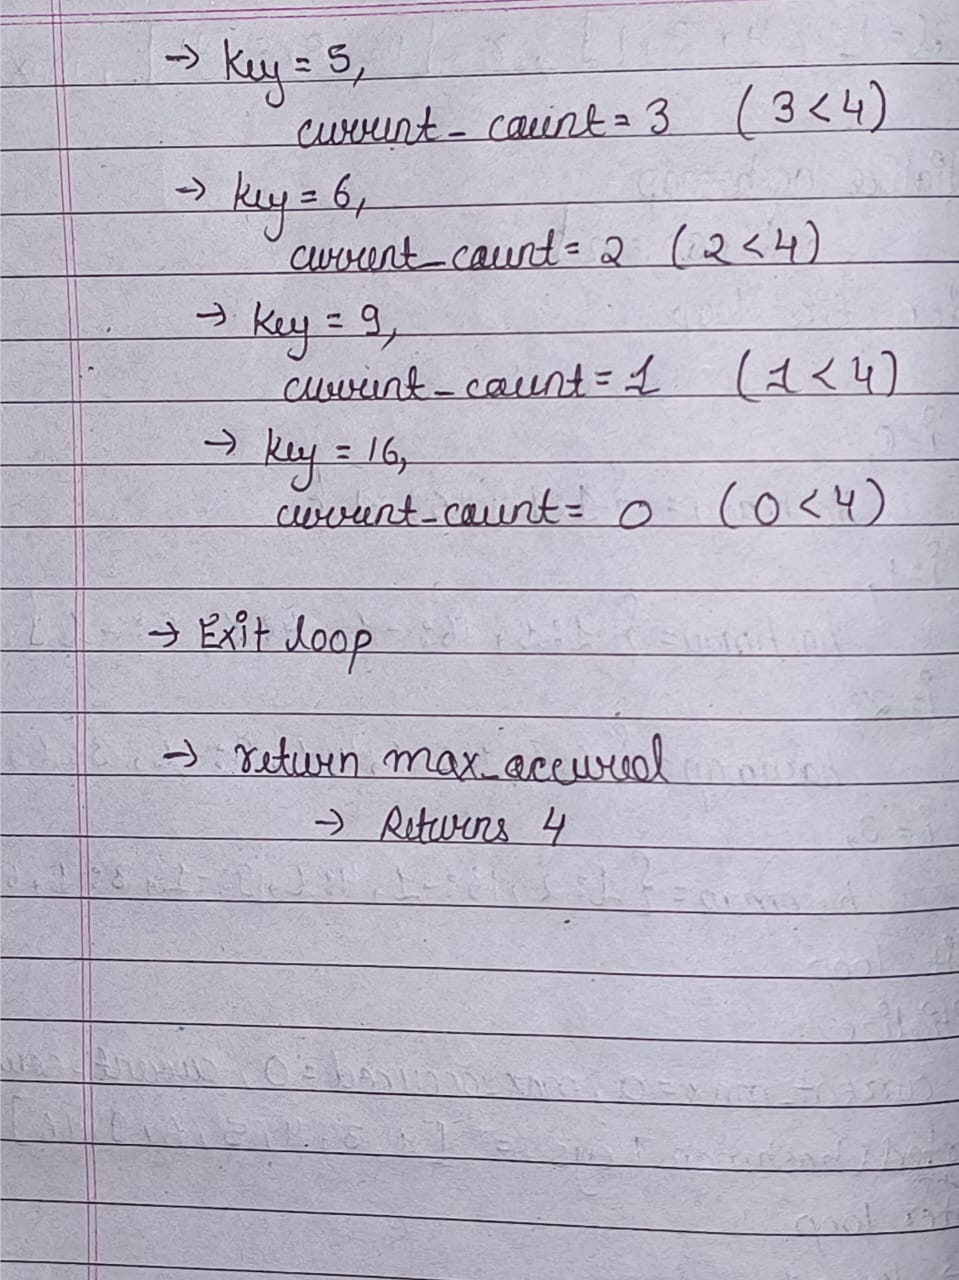 → Key = 5,
current_count = 3 (3<4)
→ Key = 6,
current_count = 2 (2<4)
→ Key = 9,
current_count = 1 (1<4)
→ Key = 16,
current_count = 0 (0<4)
→ Exit loop
→ return max_occured
→ Returns 4